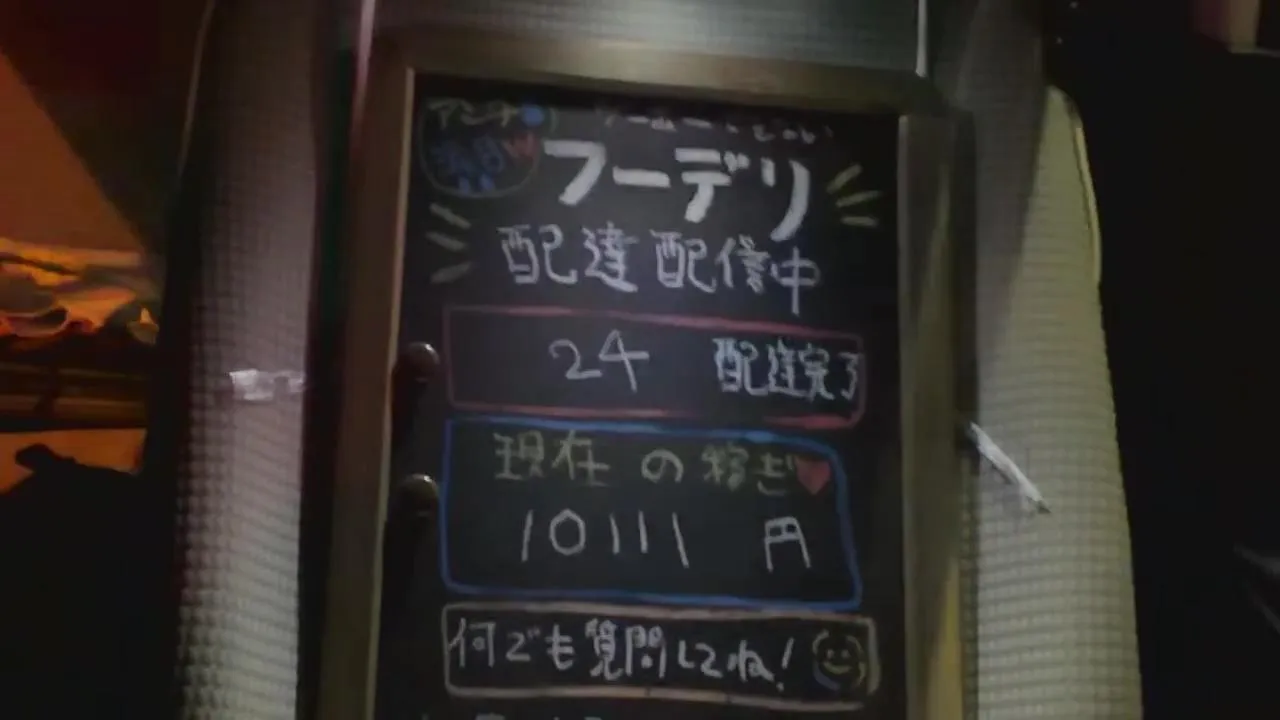 フーデリ
配達配信中
24 配達完了
現在の稼ぎ
10111 円
何でも質問してね!